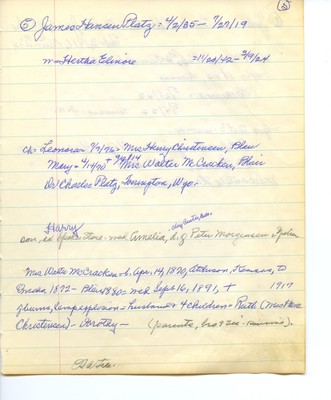 ⑤ James Hansen Platz = 4/2/35 - 7/27/19
m = Hertha Elinore = 11/20/42 - 3/9/24
ch = Leonora = 7/7/76 = Mrs Henry Christensen, Blair
Mary = 4/14/70 + 9/1/14 Mrs Walter McCracken, Blair
Dr Charles Platz, Torrington, Wyo.
Harry
son, ed store - md Amelia, d. of Peter Morgensen
Mrs Walter McCracken - b. Apr. 14, 1870, Atchison, Kansas, to
Omaha 1872 - Blair 1880 = md Sept 16, 1891, + 1917
of burns, lamp explosion = husband + 4 children = Ruth (Mrs
Christensen) - Dorothy - (parents, bro + sis -